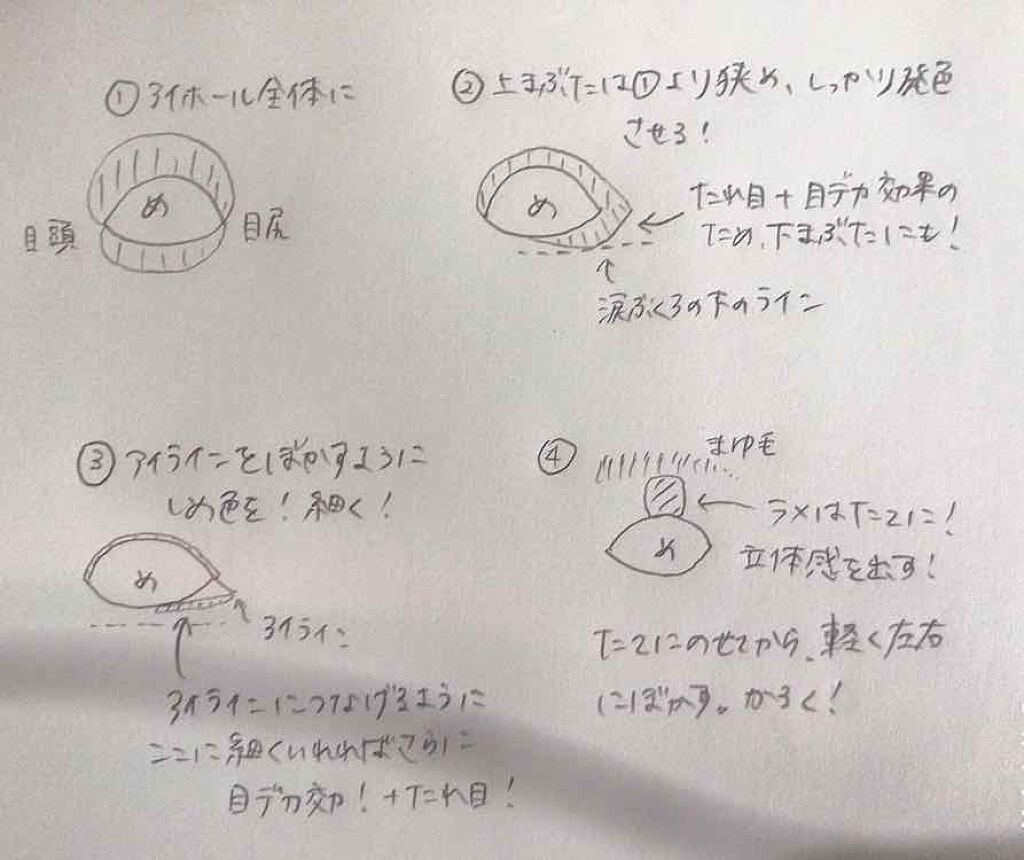 ①アイホール全体に
め
目頭
目尻
②上まぶたは①より狭め、しっかり発色
させる!
め
たれ目+目デカ効果の
ため、下まぶたにも!
涙ぶくろの下のライン
③アイラインをぼかすように
しめ色を!細く!
め
アイライン
アイラインにつなげるように
ここに細くいれればさらに
目デカ効力!+たれ目!
④
まゆ毛
め
ラメはたてに!
立体感を出す!
たてにのせてから、軽く左右
にぼかす。かるく!